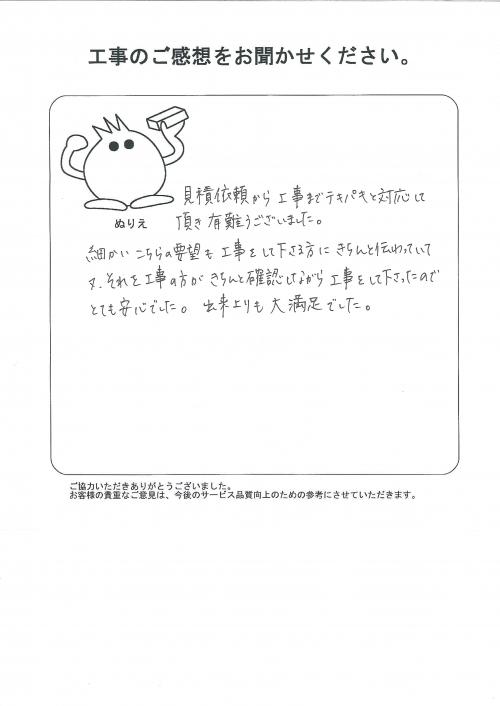 工事のご感想をお聞かせください。
見積依頼から工事までテキパキと対応して
頂き有難うございました。
ぬりえ
細かいこちらの要望も工事をして下さる方にきちんと伝わっていて
又、それを工事の方がきちんと確認しながら工事をして下さったので
とても安心でした。 出来よりも大満足でした。
ご協力いただきありがとうございました。
お客様の貴重なご意見は、今後のサービス品質向上のための参考にさせていただきます。